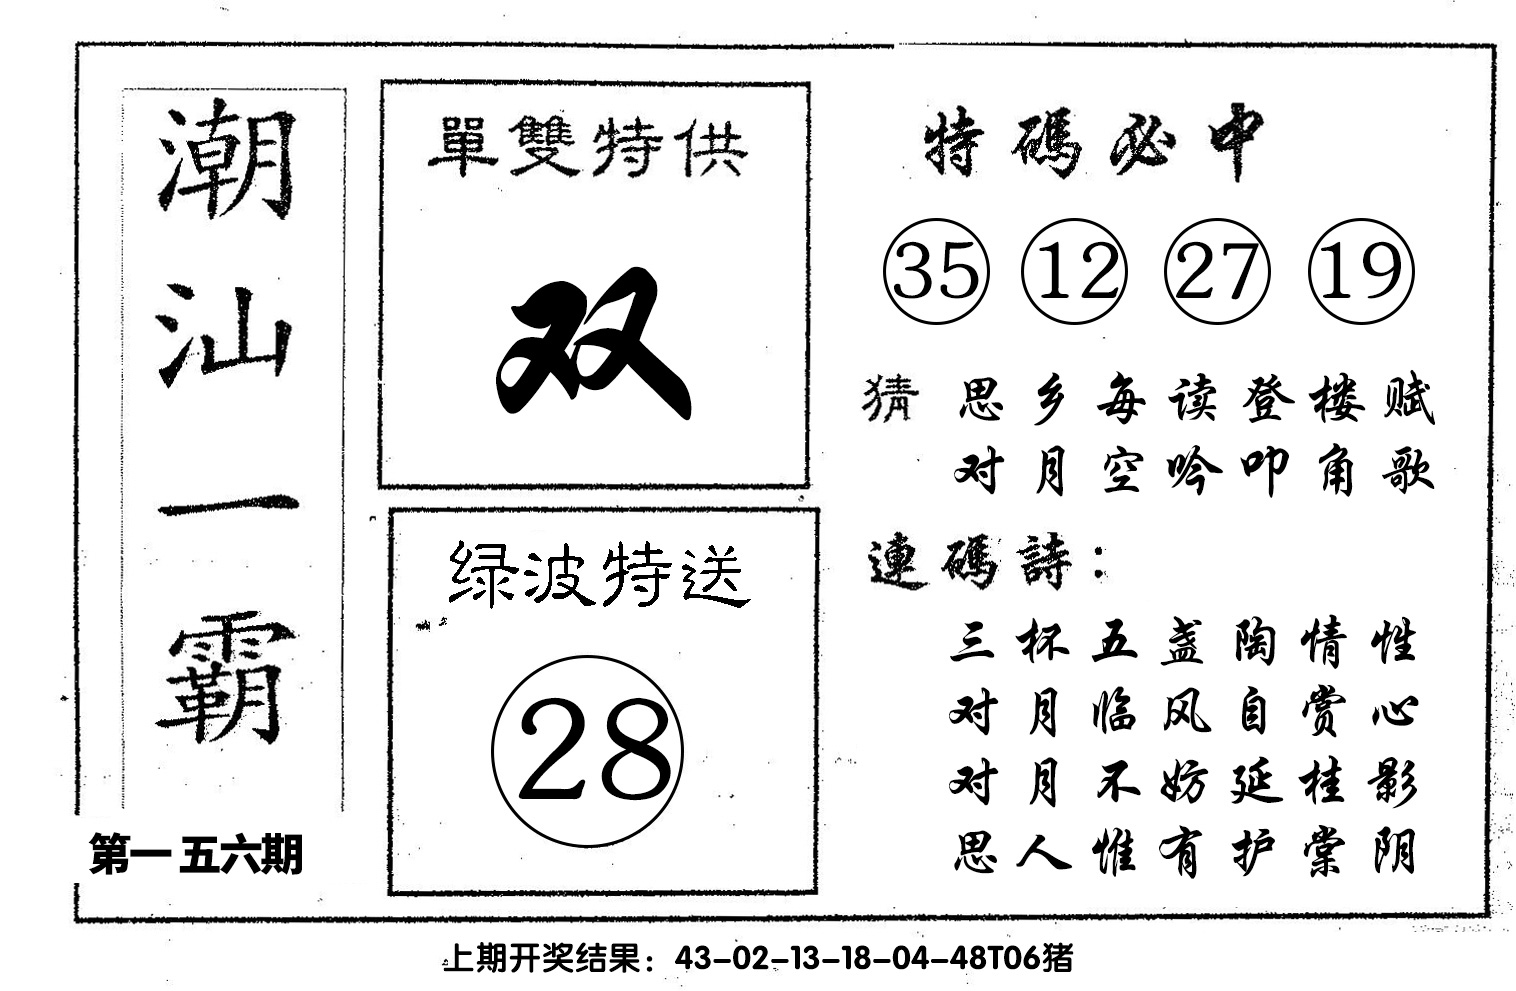 潮汕一霸
第一五六期
單雙特供
双
绿波特送
28
特碼必中
35 12 27 19
猜 思乡每读登楼赋
对月空吟叩角歌
連碼詩：
三杯五盏陶情性
对月临风自赏心
对月不妨延桂影
思人惟有护棠阴
上期开奖结果：43-02-13-18-04-48T06猪